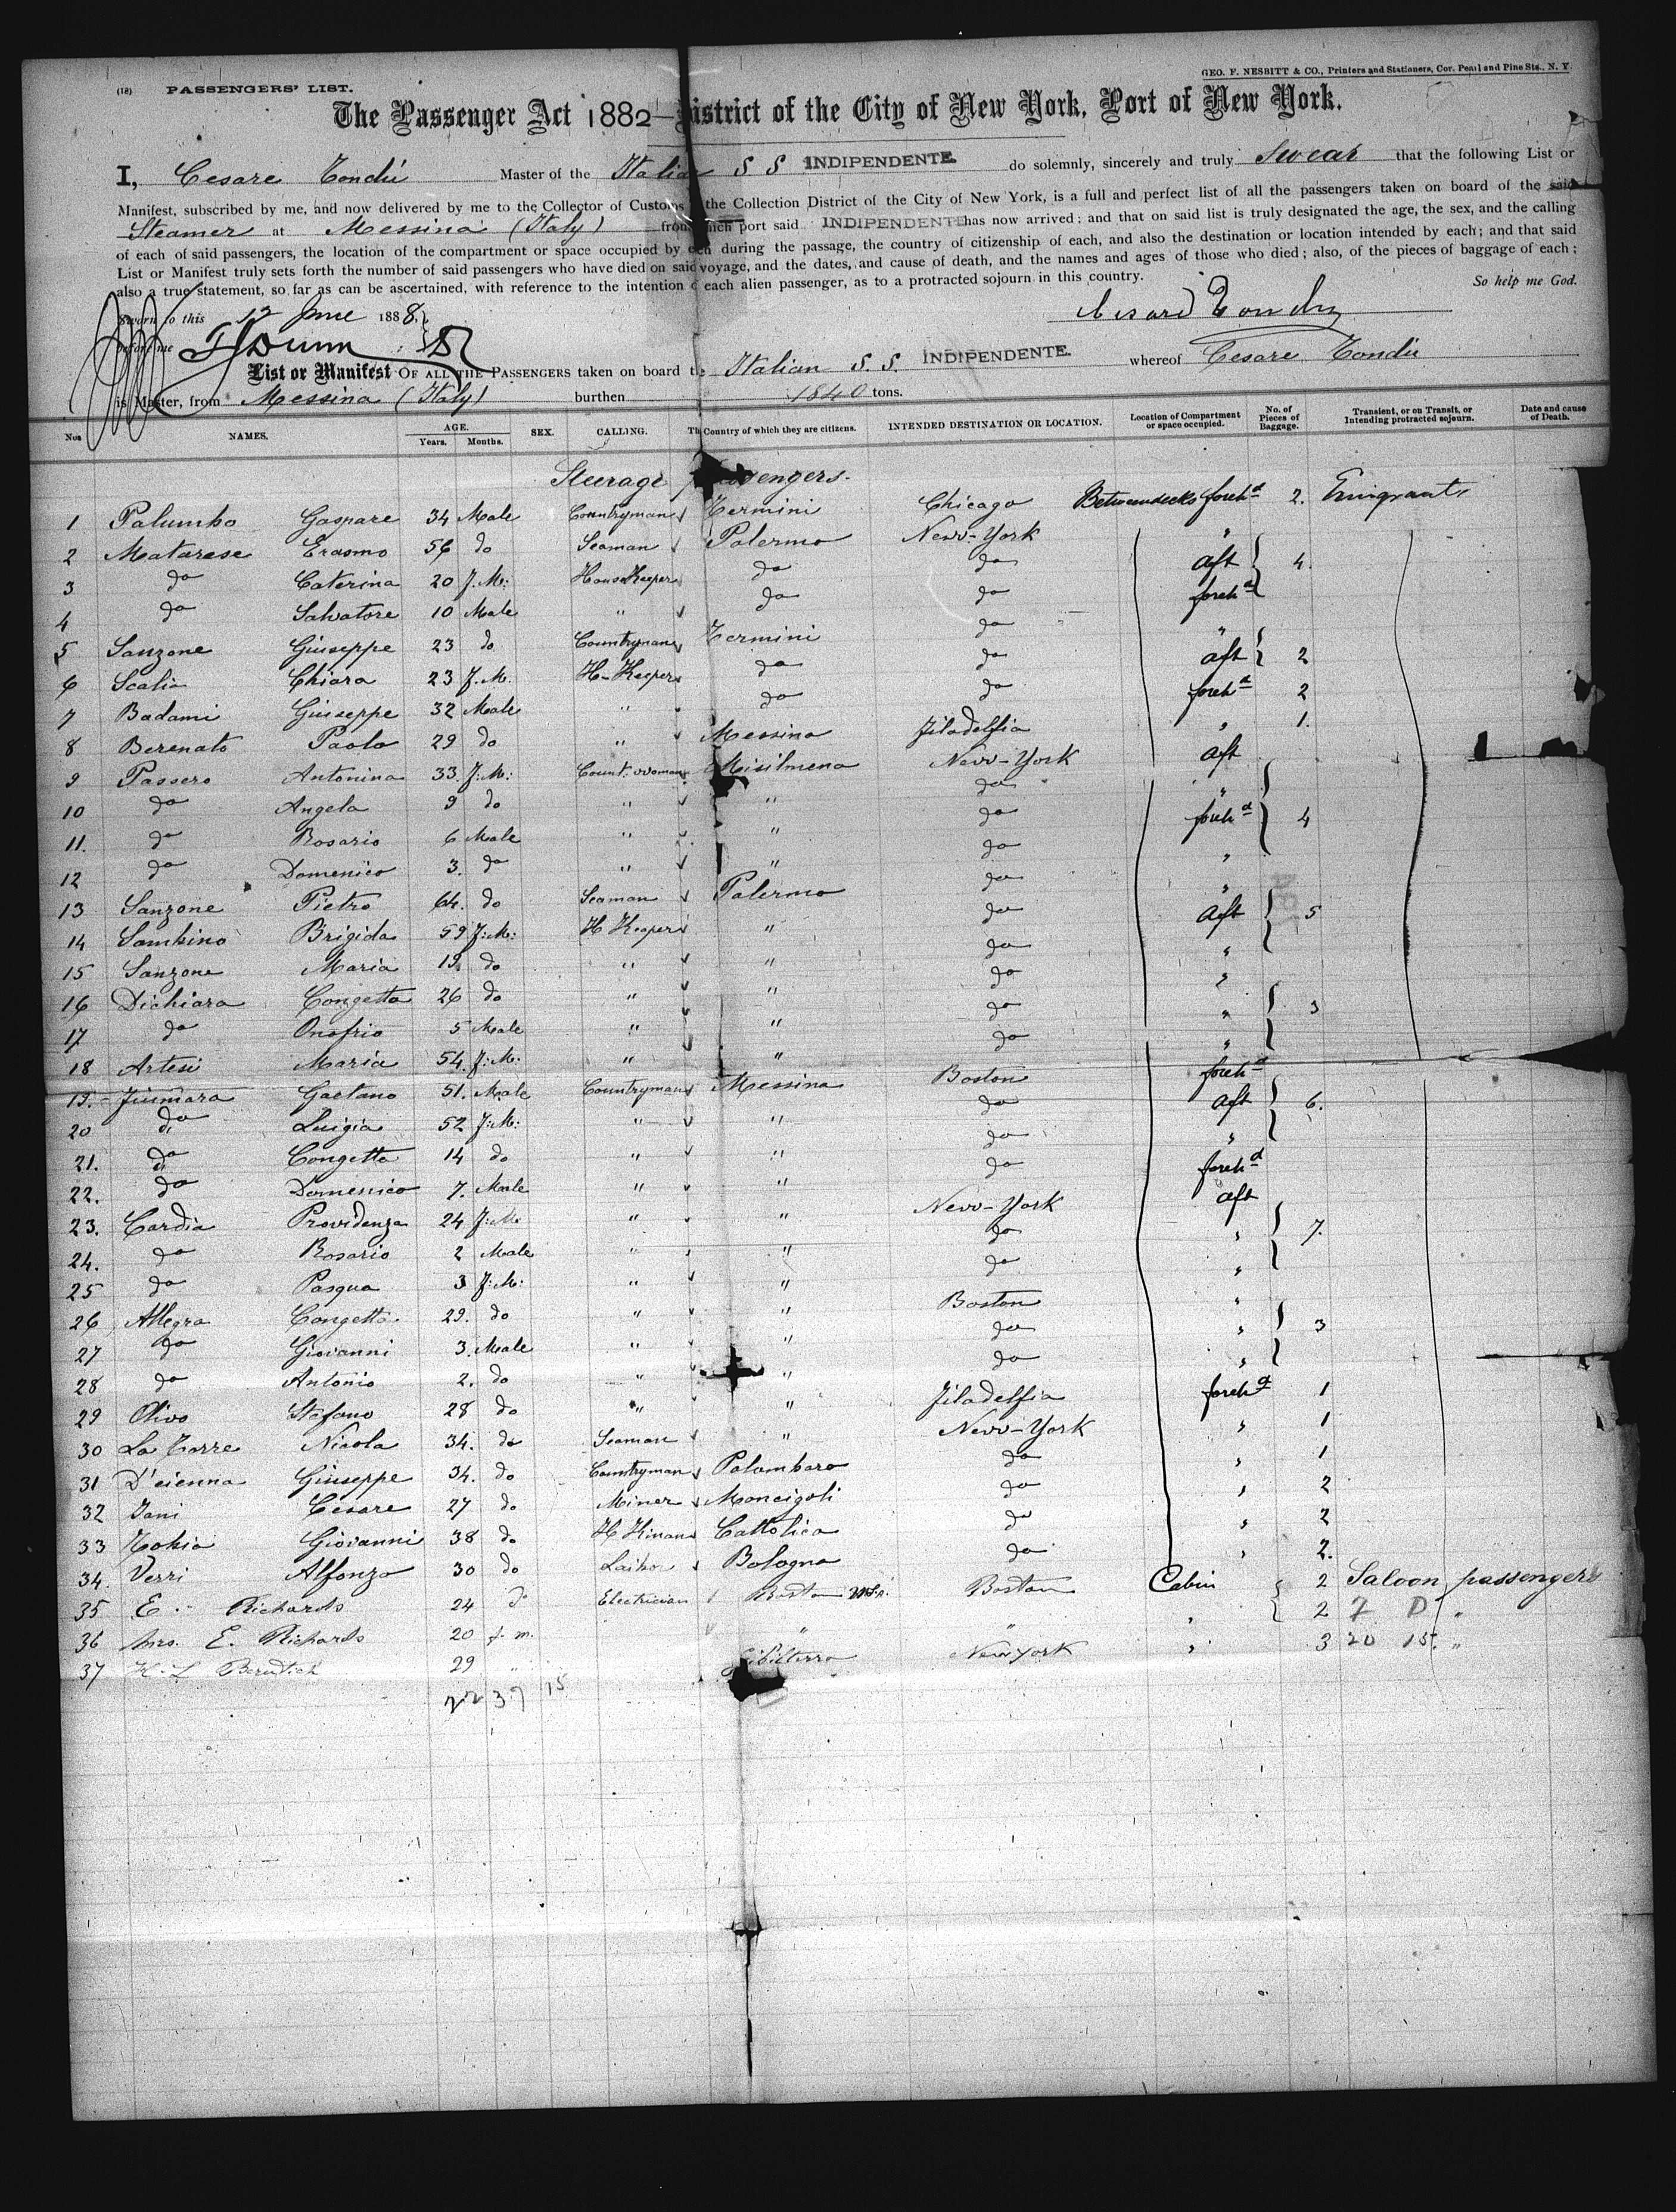 (18) PASSENGERS' LIST.
GEO. F. NESBITT & CO., Printers and Stationers, Cor. Pearl and Pine Sts., N. Y.
The Passenger Act 1882— District of the City of New York, Port of New York.
I, Cesare Tondù Master of the Italian S S INDIPENDENTE do solemnly, sincerely and truly Swear that the following List or
Manifest, subscribed by me, and now delivered by me to the Collector of Customs the Collection District of the City of New York, is a full and perfect list of all the passengers taken on board of the said
Steamer at Messina (Italy) from which port said INDIPENDENTE has now arrived; and that on said list is truly designated the age, the sex, and the calling
of each of said passengers, the location of the compartment or space occupied by each during the passage, the country of citizenship of each, and also the destination or location intended by each; and that said
List or Manifest truly sets forth the number of said passengers who have died on said voyage, and the dates, and cause of death, and the names and ages of those who died; also, of the pieces of baggage of each;
also a true statement, so far as can be ascertained, with reference to the intention of each alien passenger, as to a protracted sojourn in this country. So help me God.
Sworn to this 12 June 1888, Cesare Tondù
before me Dunn
List or Manifest OF ALL THE PASSENGERS taken on board the Italian S. S. INDIPENDENTE whereof Cesare Tondù
is Master, from Messina (Italy) burthen 1840 tons.
Nos NAMES. AGE. Years. Months. SEX. CALLING. The Country of which they are citizens. INTENDED DESTINATION OR LOCATION. Location of Compartment or space occupied. No. of Pieces of Baggage. Transient, or on Transit, or Intending protracted sojourn. Date and cause of Death.
Steerage passengers.
1 Palumbo Gaspare 34 Male Countryman Termini Chicago Betweendecks foreh d 2. Emigrants
2 Matarese Erasmo 56 do Seaman Palermo New-York "
3 do Caterina 20 f.M: HouseKeeper do do aft 4.
4 do Salvatore 10 Male " do do foreh d
5 Sanzone Giuseppe 23 do Countryman Termini do "
6 Scalia Chiara 23 f.M. H-Keeper do do aft 2
7 Badami Giuseppe 32 Male " do do foreh d 2
8 Berenato Paolo 29 do " Messina filadelfia " 1.
9 Passero Antonina 33 f:M: Count. woman Misilmena New-York aft
10 do Angela 9 do " " do "
11. do Rosario 6 Male " " do foreh d 4
12 do Domenico 3. do " " do "
13 Sanzone Pietro 64. do Seaman Palermo do "
14 Sambino Brigida 59 f:M: H Keeper " do aft 5
15 Sanzone Maria 19. do " " do "
16 Dichiara Congetta 26 do " " do "
17 do Onofrio 5 Male " " do " 3
18 Artesi Maria 54. f:M: " " do "
19. fiumara Gaetano 51. Male Countryman Messina Boston foreh d
20 do Luigia 52 f:M: " " do aft 6.
21. do Congetta 14 do " " do "
22. do Domenico 7. Male " " do foreh d
23. Cardia Providenza 24 f:M. " " New-York aft
24. do Rosario 2 Male " " do " 7.
25 do Pasqua 3 f:M: " " do "
26 Allegra Congetta 29. do " " Boston "
27 do Giovanni 3. Male " " do " 3
28 do Antonio 2. do " " do "
29 Olivo Stefano 28 do " " filadelfia foreh d 1
30 La Torre Nicola 34. do Seaman " New-York " 1
31 D'eienna Giuseppe 34. do Countryman Palombaro do " 1
32 Jani Cesare 27 do Miner Moncigoli do " 2
33 Giovanni 38 do Cattolica do " 2
34. Verri Alfonzo 30 do Bologna do " 2.
35 E. Richards 24 do Electrician Boston Boston Cabin 2 Saloon passengers
36 Mrs. E. Richards 20 f. m. " " " 2 7 D "
37 29 " Gibilterra New York " 3 20 15. "
22 37 15